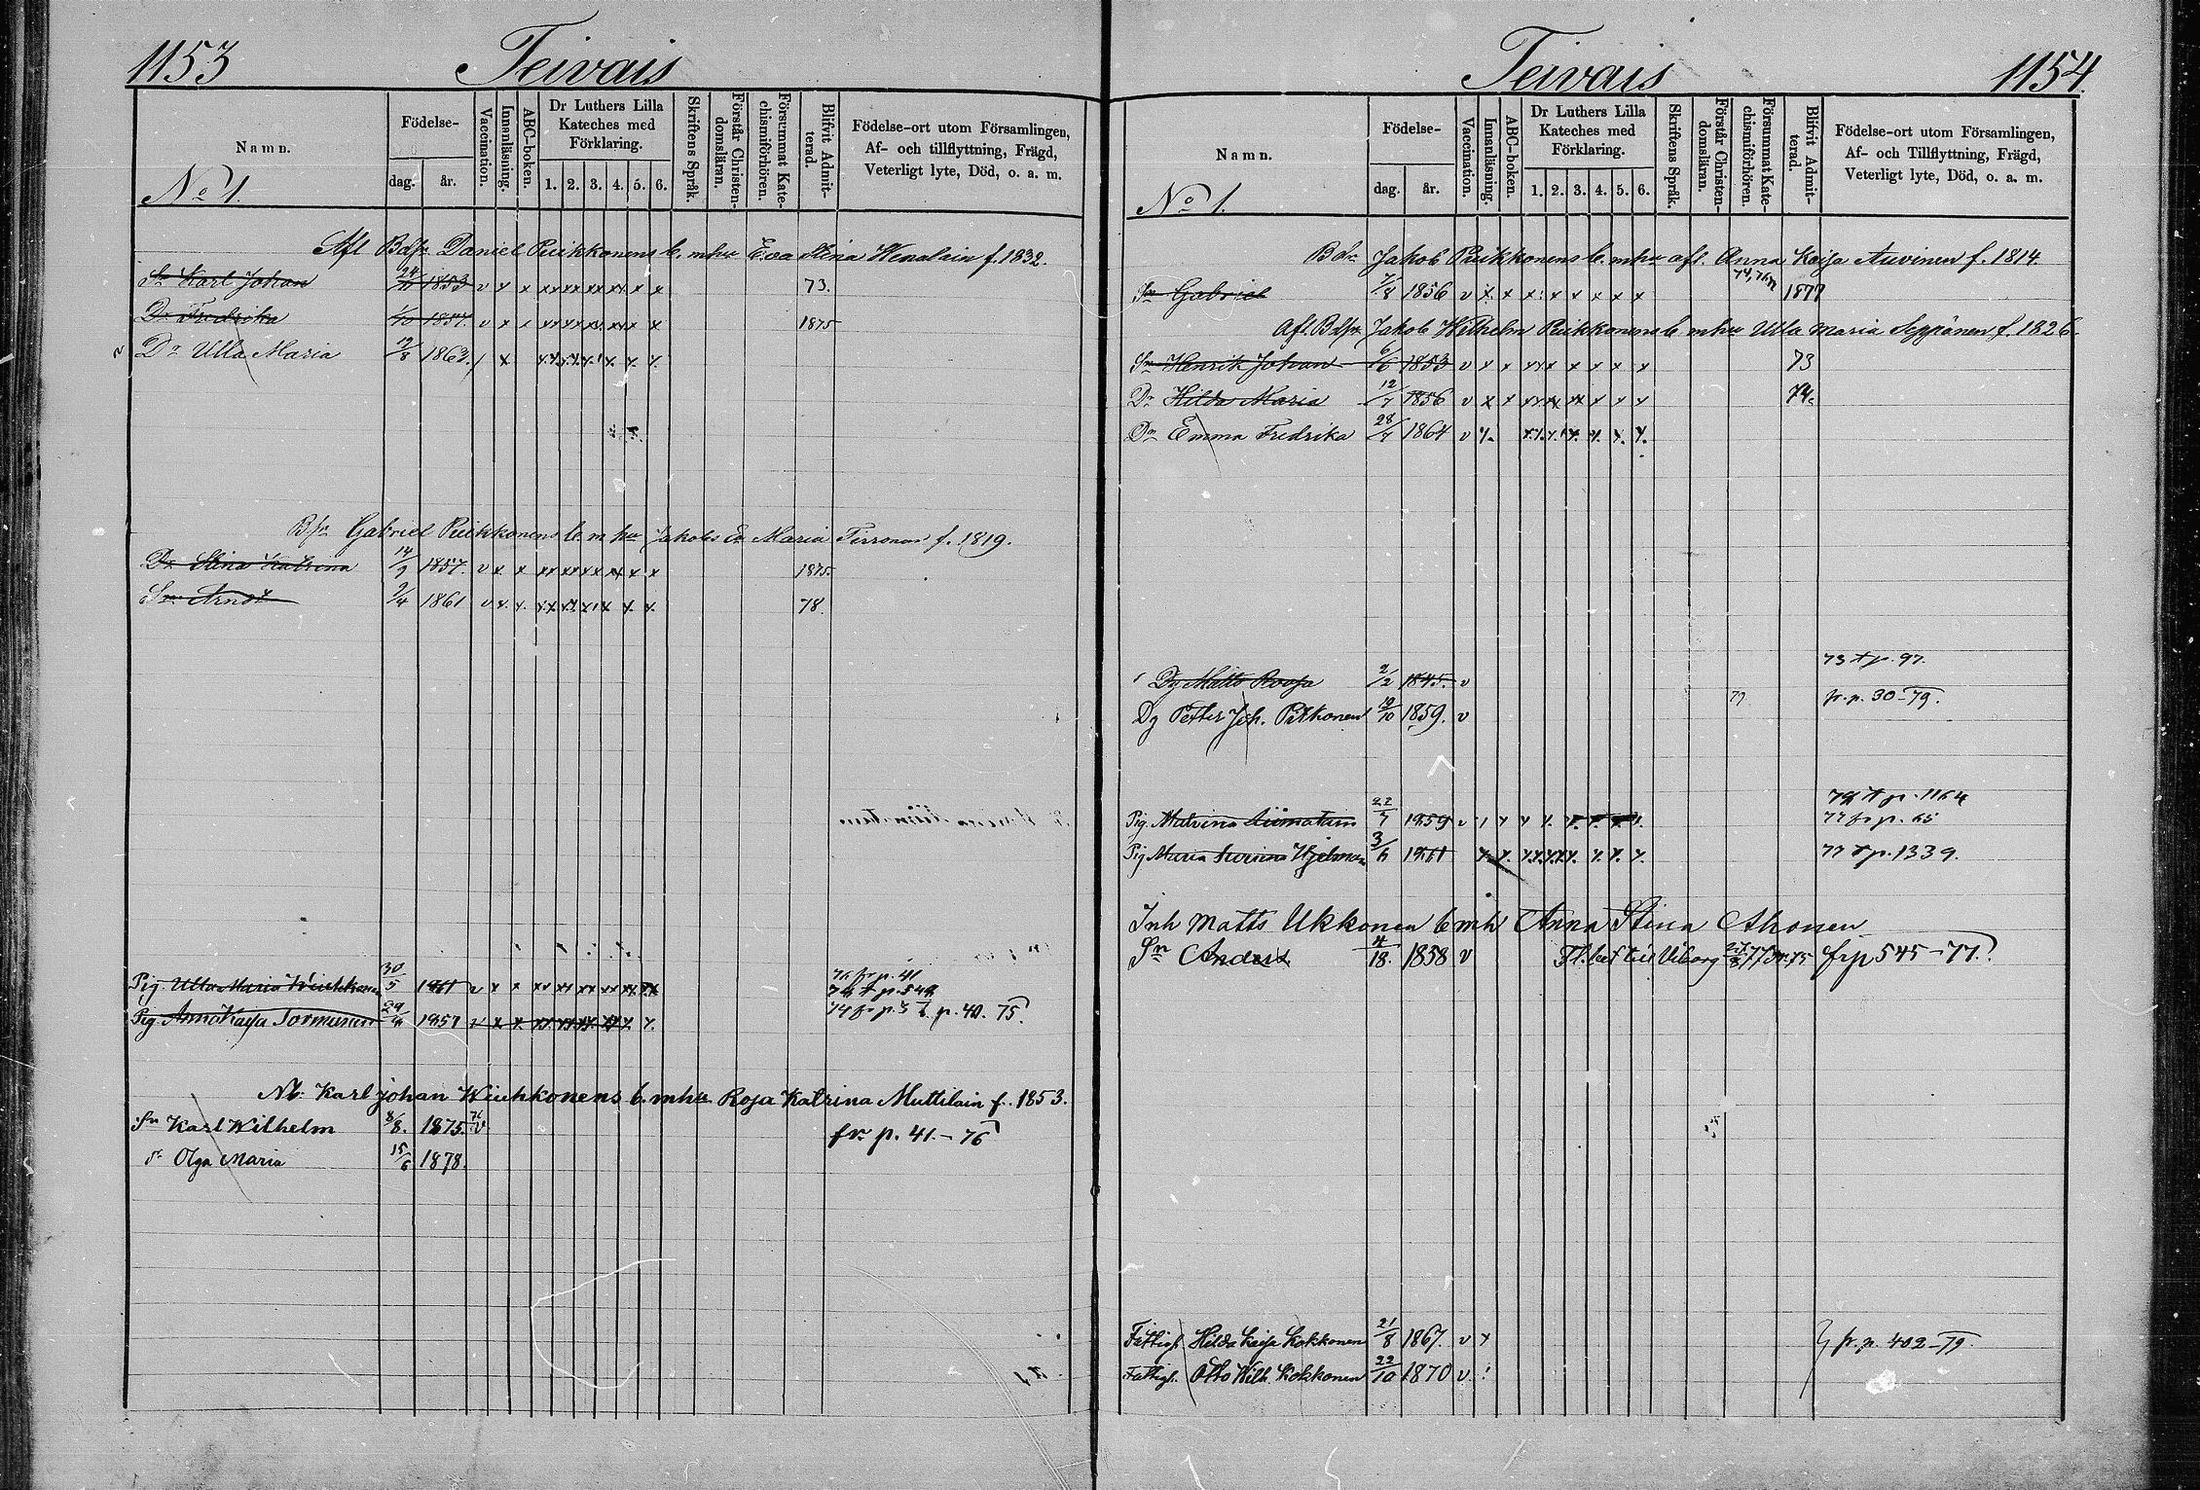 1153 Teivais
Namn.
Födelse-
dag. år.
Vaccination.
Innanläsning.
ABC-boken.
Dr Luthers Lilla Kateches med Förklaring.
1. 2. 3. 4. 5. 6.
Skriftens Språk.
Förstår Christendomsläran.
Försummat Katechismiförhören.
Blifvit Admitterad.
Födelse-ort utom Församlingen,
Af- och tillflyttning, Frägd,
Veterligt lyte, Död, o. a. m.
No 1.
Afl Daniel Puikkonens b. mhu Eva Stina f. 1832.
Sn Karl Johan 1853 v x x 73.
Dr Fredrika 1857. v x x 1875
Dr Ulla Maria 19/8 1863.
Gabriel Puikkonens b. mhu Maria f. 1819.
Dr Stina Katrina 14/9 1857. v x x 1875.
Sn 9/4 1861 v 78.
Pig Ulla Maria 30/5 1861 v 76 fr p. 41
Pig Anna Kaisa Tormunen 1857 v p. 40. 75.
Karl Johan b. mhu Rosa Katrina Muttilain f. 1853.
Sn Karl Wilhelm 8/8. 1875. fr p. 41.-76
Dr Olga Maria 15/6 1878.
Teivais 1154.
Namn.
Födelse-
dag. år.
Vaccination.
Innanläsning.
ABC-boken.
Dr Luthers Lilla Kateches med Förklaring.
1. 2. 3. 4. 5. 6.
Skriftens Språk.
Förstår Christendomsläran.
Försummat Katechismiförhören.
Blifvit Admitterad.
Födelse-ort utom Församlingen,
Af- och Tillflyttning, Frägd,
Veterligt lyte, Död, o. a. m.
No 1.
Jakob Puikkonens b. mhu afl. Anna Kaisa Auvinen f. 1814.
Sn Gabriel 7/8 1856 v 1877
Afl. Jakob Wilhelm Puikkonens b mhu Ulla Maria Seppänen f. 1826.
Sn Henrik Johan 6/6 1853 v x x 73
Dr Hilda Maria 12/7 1856 v x x 74.
Dr Emma Fredrika 28/7 1864 v
73 p. 97.
Dg 2/2 1845. v
Dg Petter Joh. Pitkonen 10/10 1859. v 79 fr. p. 30-79.
Pig. Malvina 22/7 1859 v 77 fr p. 65
Pig Maria 3/6 1861 77 p. 1339.
Inh Matts Ukkonen b mh Anna Stina Ahonen
Sn Anders 1858 v Viborg fr p 545-77.
Hilda Kaisa Kokkonen 21/8 1867. v fr. p. 402-79.
Otto Wilh. Kokkonen 22/10 1870 v